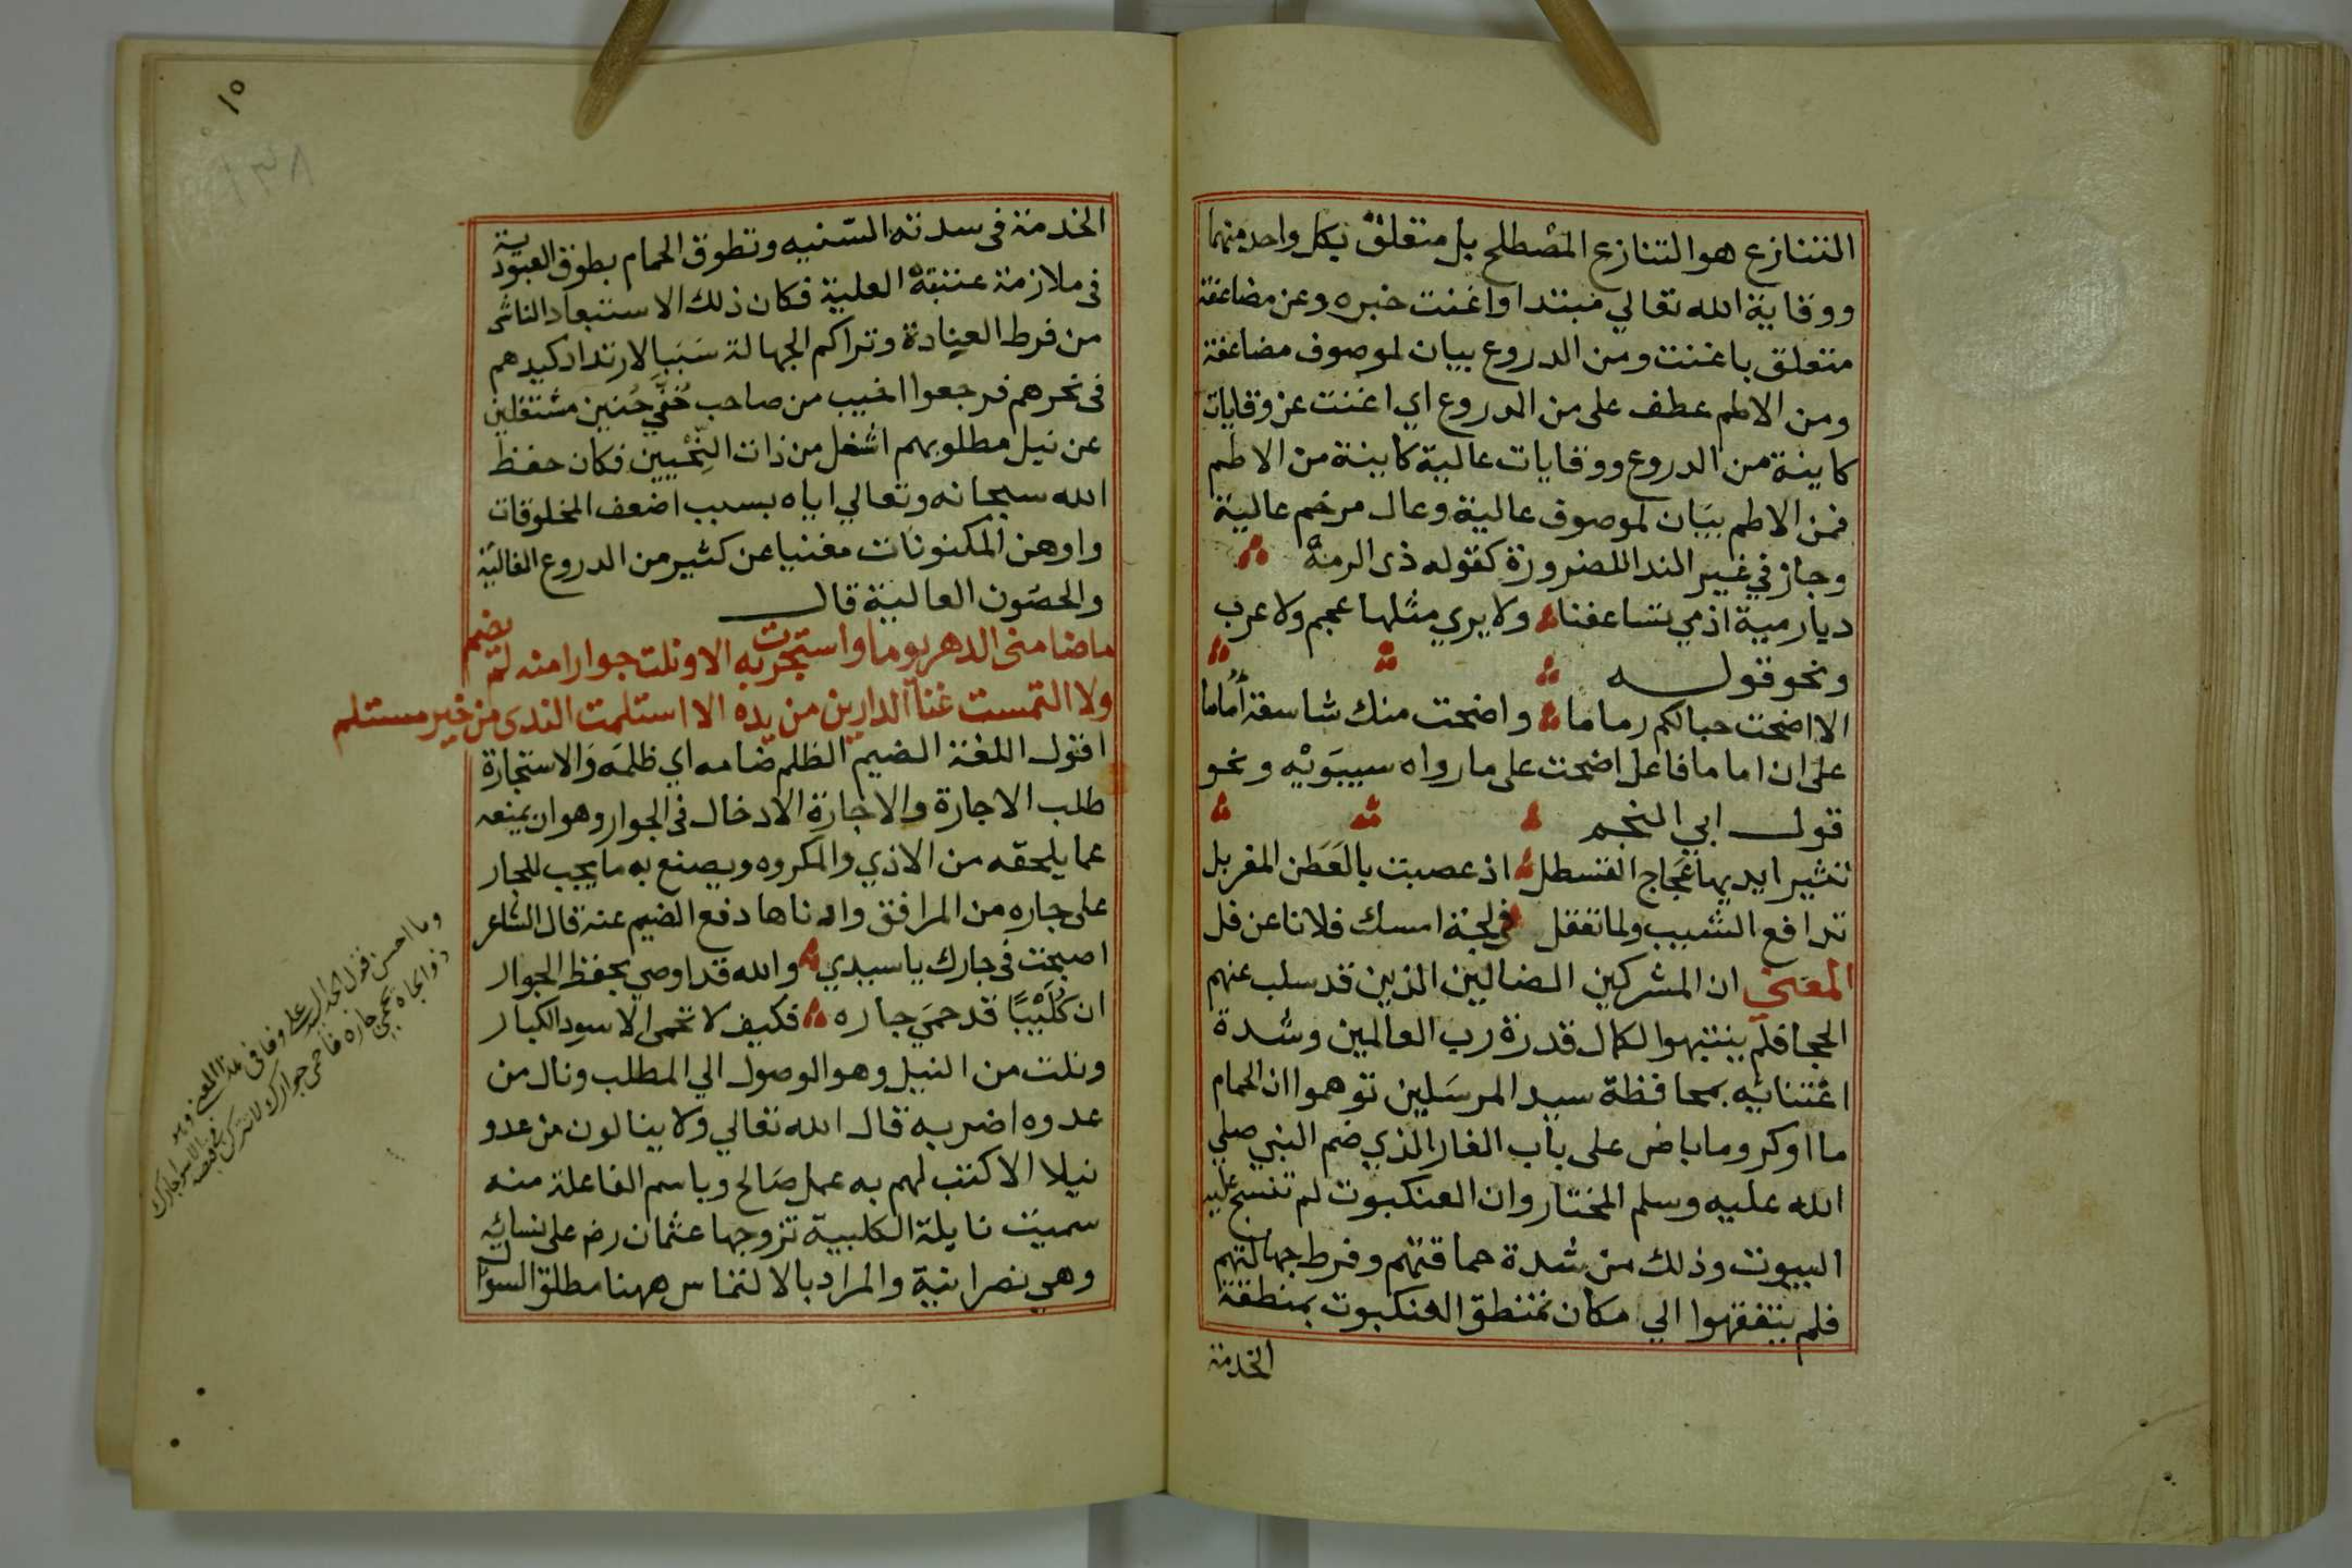 التنازع هو التنازع المصطلح بل متعلق بكل واحد منهما
ووقاية الله تعالي مبتدا واغنت خبره وعن مضاعفة
متعلق باغنت ومن الدروع بيان لموصوف مضاعفة
ومن الاطم عطف على من الدروع اي اغنت عن وقايات
كاينة من الدروع ووقايات عالية كاينة من الاطم
فمن الاطم بيان لموصوف عالية وعال مرخم عالية
وجاز في غير الندا للضرورة كقوله ذى الرمة
ديار مية اذ مي تساعفنا ولا يري مثلها عجم ولا عرب
ونحو قوله
الا اضحت حبالكم رماما واضحت منك شاسعة أماما
على ان اماما فاعل اضحت على ما رواه سيبويه ونحو
قول ابي النجم
تثير ايديها عجاج القسطل اذ عصبت بالعطن المغربل
تدافع الشيب ولما تقتل في لجة امسك فلانا عن فل
المعني ان المشركين الضالين الذين قد سلب عنهم
الحجا فلم ينتبهوا لكمال قدرة رب العالمين وشدة
اعتنائه بمحافظة سيد المرسلين توهموا ان الحمام
ما اوكر وما باض على باب الغار الذي ضم النبي صلي
الله عليه وسلم المختار وان العنكبوت لم تنسج عليه
البيوت وذلك من شدة حماقتهم وفرط جهالتهم
فلم يتفقهوا الي مكان تمنطق العنكبوت بمنطقة
الخدمة
١٥
الخدمة فى سدته السنيه وتطوق الحمام بطوق العبودية
فى ملازمة عتبته العلية فكان ذلك الاستبعاد الناشى
من فرط العنادة وتراكم الجهالة سببا لارتداد كيدهم
فى نحرهم فرجعوا اخيب من صاحب خفي حنين مشتغلين
عن نيل مطلوبهم اشغل من ذات النحيين فكان حفظ
الله سبحانه وتعالي اياه بسبب اضعف المخلوقات
واوهن المكنونات مغنيا عن كثير من الدروع الغالية
والحصون العالية قال
ما ضامنى الدهر يوما واستجرت به الا ونلت جوارا منه لم يضم
ولا التمست غنا الدارين من يده الا استلمت الندى من خير مستلم
اقول اللغة الضيم الظلم ضامه اي ظلمه والاستجارة
طلب الاجارة والاجارة الادخال فى الجوار وهو ان يمنعه
عما يلحقه من الاذي والمكروه ويصنع به ما يجب للجار
على جاره من المرافق وادناها دفع الضيم عنه قال الشاعر
اصبحت فى جارك يا سيدي والله قد اوصي بحفظ الجوار
ان كليبا قد حمي جاره فكيف لا تحمى الاسود الكبار
ونلت من النيل وهو الوصول الي المطلب ونال من
عدوه اضر به قال الله تعالي ولا ينالون من عدو
نيلا الا كتب لهم به عمل صالح وباسم الفاعلة منه
سميت نايلة الكلبية تزوجها عثمان رضـ على نسائه
وهي نصرانية والمراد بالالتماس ههنا مطلق السوال
وما احسن قول على وفا فى هذا المعنى وهو
ذو الجاه يحمي جاره فاحمى جوارك ولا تترك